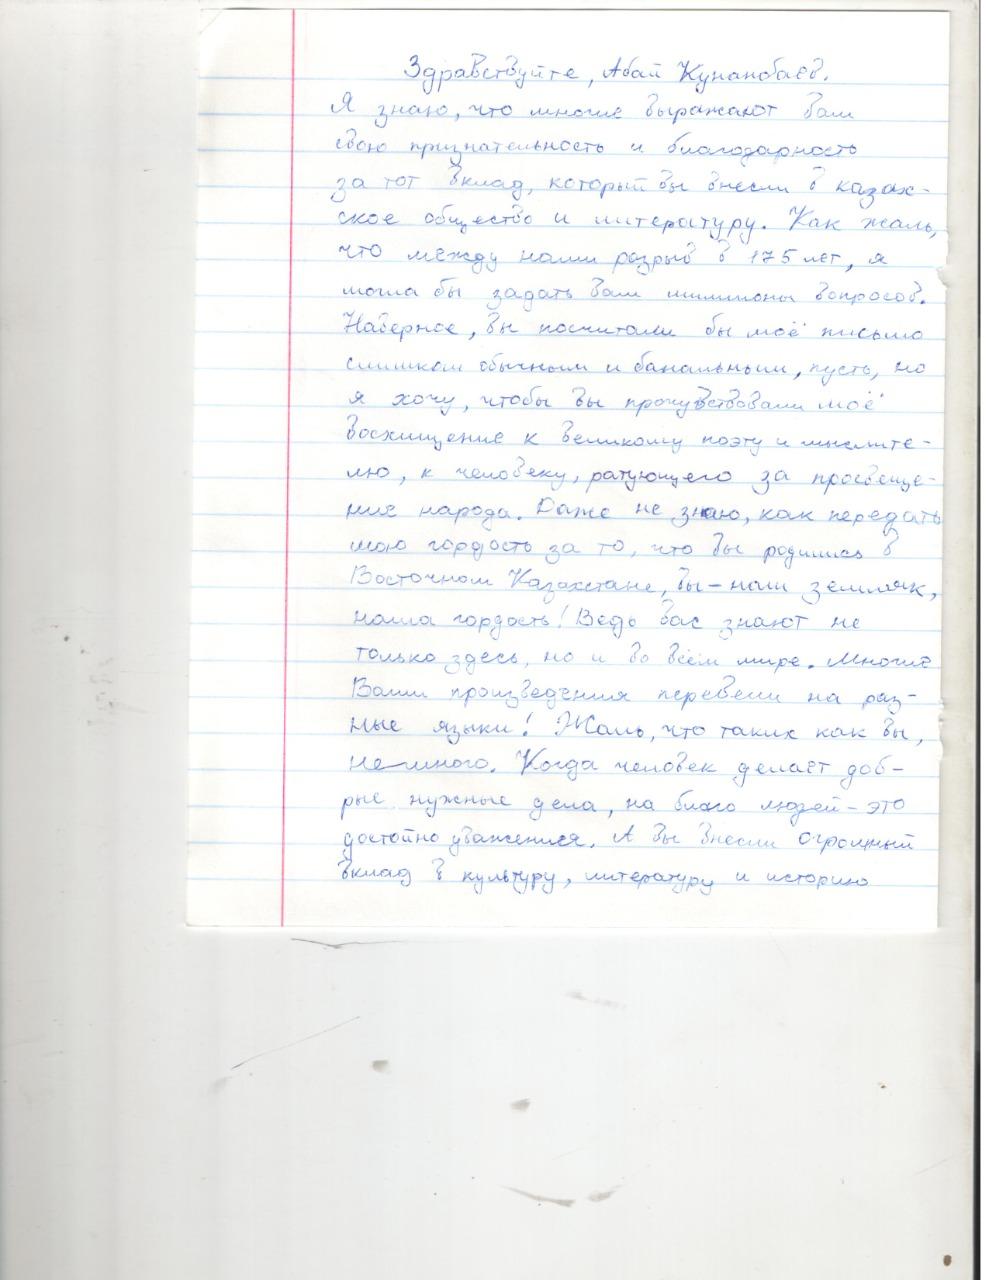 Здравствуйте, Абай Кунанбаев.
Я знаю, что многие выражают Вам
свою признательность и благодарность
за тот вклад, который вы внесли в казах-
ское общество и литературу. Как жаль,
что между нами разрыв в 175 лет, я
могла бы задать вам миллионы вопросов.
Наверное, вы посчитали бы моё письмо
слишком обычным и банальным, пусть, но
я хочу, чтобы вы прочувствовали моё
восхищение к великому поэту и мыслите-
лю, к человеку, ратующего за просвеще-
ние народа. Даже не знаю, как передать
мою гордость за то, что вы родились в
Восточном Казахстане, вы – наш земляк,
наша гордость! Ведь вас знают не
только здесь, но и во всём мире. Многие
Ваши произведения перевели на раз-
ные языки! Жаль, что таких как вы,
немного. Когда человек делает доб-
рые нужные дела, на благо людей – это
достойно уважения. А вы внесли огромный
вклад в культуру, литературу и историю